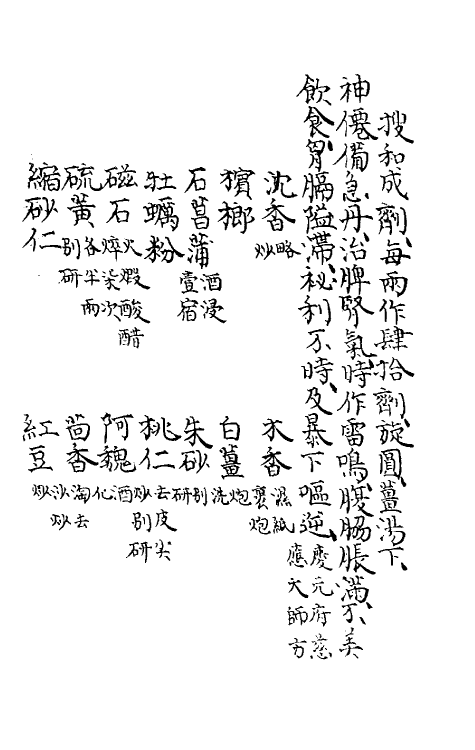 搜和成劑、每兩作肆拾劑、旋圓、薑湯下、
神僊備急丹、治脾腎氣、時作雷鳴、腹脇脹滿、不美
飲食、胃膈隘滯、祕利不時、及暴下嘔逆、慶元府慈應大師方
沈香略炒 木香濕紙裹炮
檳榔 白薑炮洗
石菖蒲酒浸壹宿 朱砂別研
牡蠣粉 桃仁去皮尖炒別研
磁石火煅酸醋焠柒次 阿魏酒化
硫黃各半兩別研 茴香淘去沙炒
縮砂仁 紅豆炒